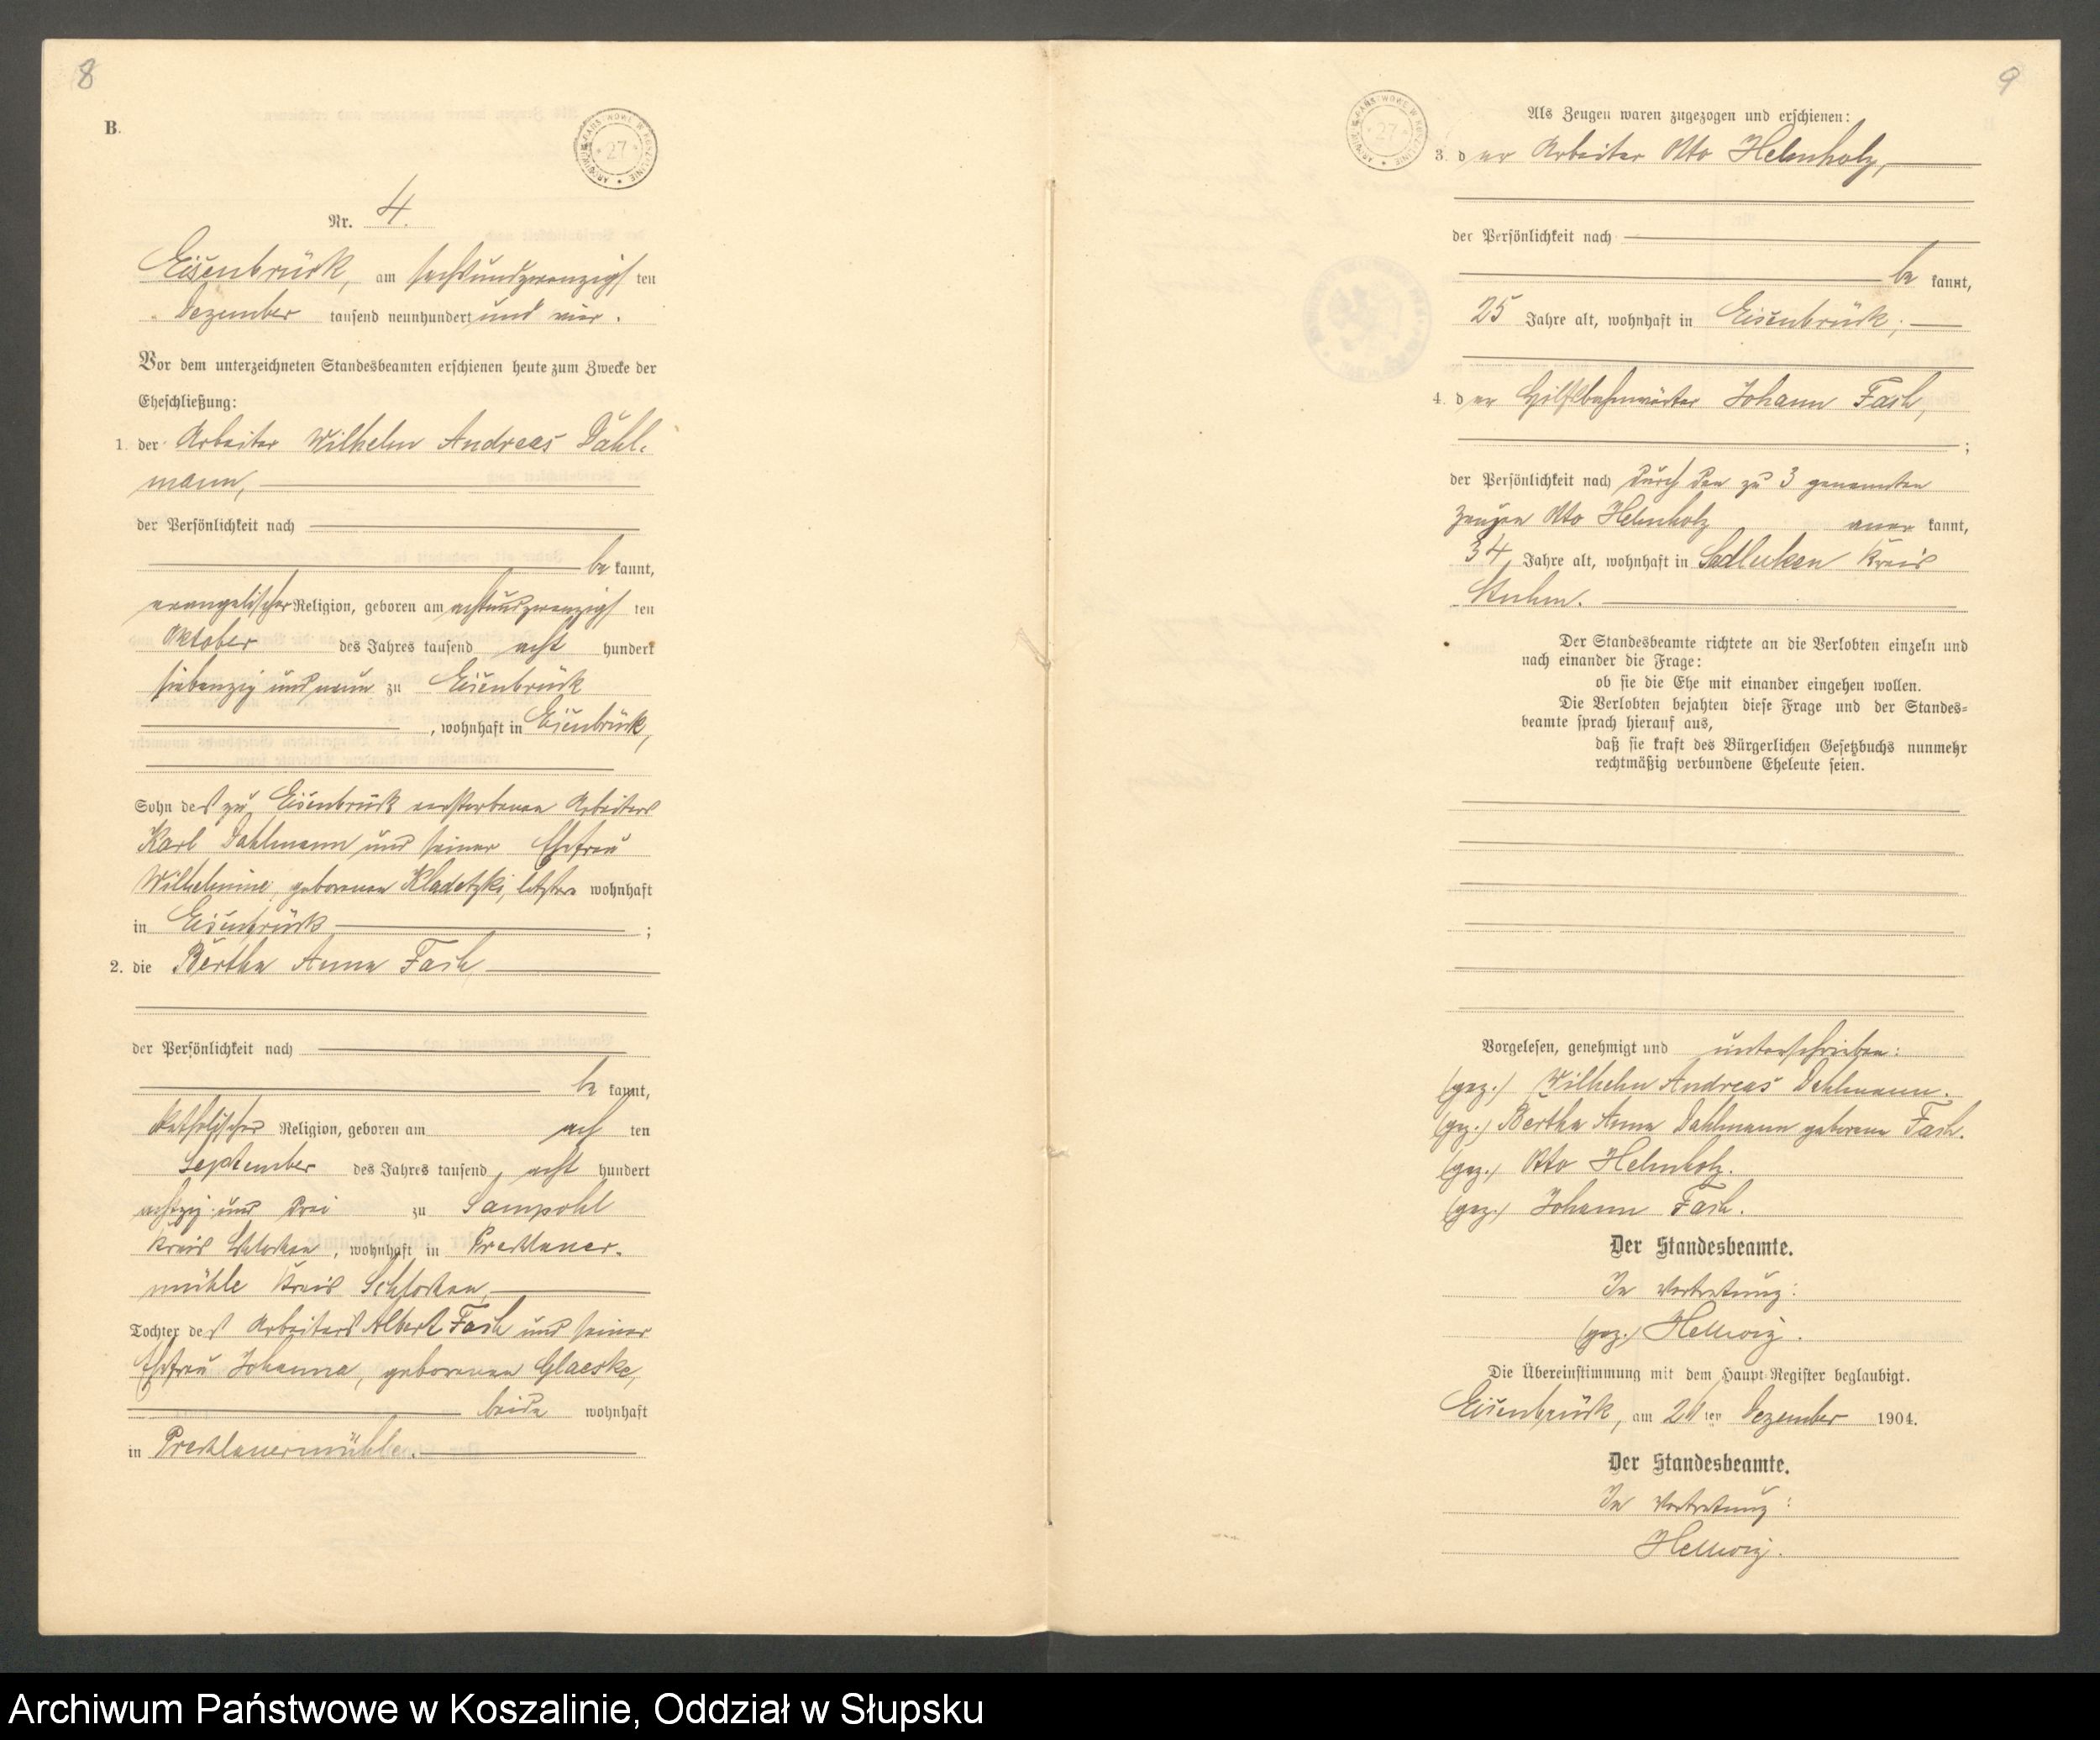 8
B.
ARCHIWUM PAŃSTWOWE W KOSZALINIE
27
Nr. 4.
Eisenbrück, am sechsundzwanzigsten
Dezember tausend neunhundert und vier.
Vor dem unterzeichneten Standesbeamten erschienen heute zum Zwecke der
Eheschließung:
1. der Arbeiter Wilhelm Andreas Dahl-
mann,
der Persönlichkeit nach
be kannt,
evangelischer Religion, geboren am achtundzwanzigsten
Oktober des Jahres tausend acht hundert
siebenzig und neun zu Eisenbrück
, wohnhaft in Eisenbrück,
Sohn des zu Eisenbrück verstorbenen Arbeiters
Karl Dahlmann und seiner Ehefrau
Wilhelmine, geborenen Kladetzki, letztere wohnhaft
in Eisenbrück ;
2. die Bertha Anna Fash
der Persönlichkeit nach
be kannt,
katholischer Religion, geboren am ach ten
September des Jahres tausend acht hundert
achtzig und drei zu Sampohl
Kreis Schlochau, wohnhaft in Prechlauer-
mühle Kreis Schlochau,
Tochter des Arbeiters Albert Fash und seiner
Ehefrau Johanna, geborenen Glaeske,
beide wohnhaft
in Prechlauermühle.
9
ARCHIWUM PAŃSTWOWE W KOSZALINIE
27
Als Zeugen waren zugezogen und erschienen:
3. der Arbeiter Otto Helmholz,
der Persönlichkeit nach
be kannt,
25 Jahre alt, wohnhaft in Eisenbrück;
4. der Hilfsbahnwärter Johann Fash,
;
der Persönlichkeit nach durch den zu 3 genannten
Zeugen Otto Helmholz aner kannt,
34 Jahre alt, wohnhaft in Sadluken Kreis
Stuhm.
Der Standesbeamte richtete an die Verlobten einzeln und
nach einander die Frage:
ob sie die Ehe mit einander eingehen wollen.
Die Verlobten bejahten diese Frage und der Standes-
beamte sprach hierauf aus,
daß sie kraft des Bürgerlichen Gesetzbuchs nunmehr
rechtmäßig verbundene Eheleute seien.
Vorgelesen, genehmigt und unterschrieben:
(gez.) Wilhelm Andreas Dahlmann.
(gez.) Bertha Anna Dahlmann geborene Fash.
(gez.) Otto Helmholz.
(gez.) Johann Fash.
Der Standesbeamte.
In Vertretung:
(gez.) Hellwig.
Die Übereinstimmung mit dem Haupt-Register beglaubigt.
Eisenbrück, am ten Dezember 1904.
Der Standesbeamte.
In Vertretung:
Hellwig.
Archiwum Państwowe w Koszalinie, Oddział w Słupsku